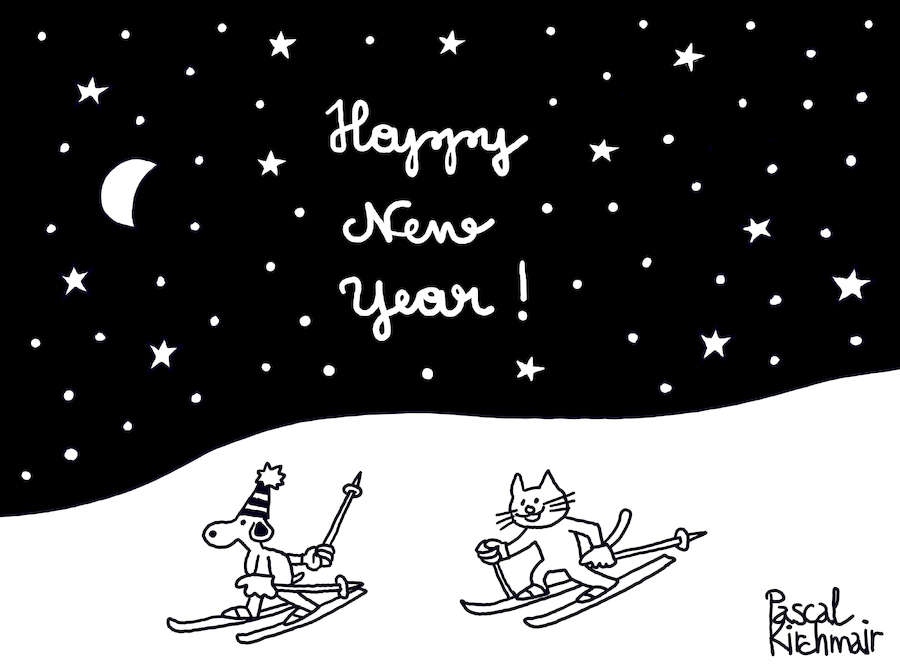 Happy
New
Year !
Pascal
Kirchmair